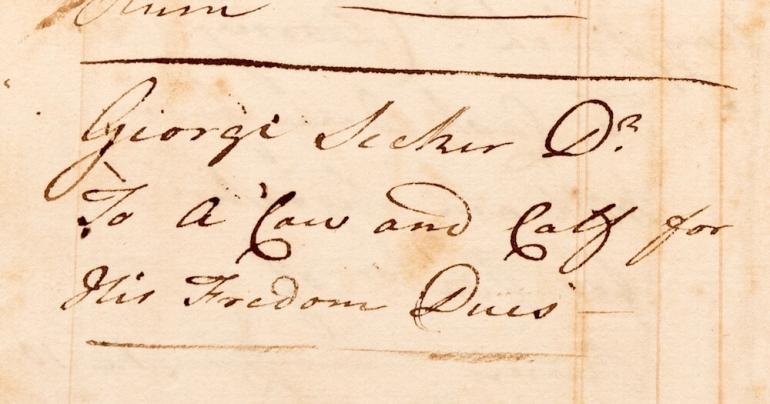 Rum
George Seeker Dr.
To A Cow and Calf for
His Fredom Dues